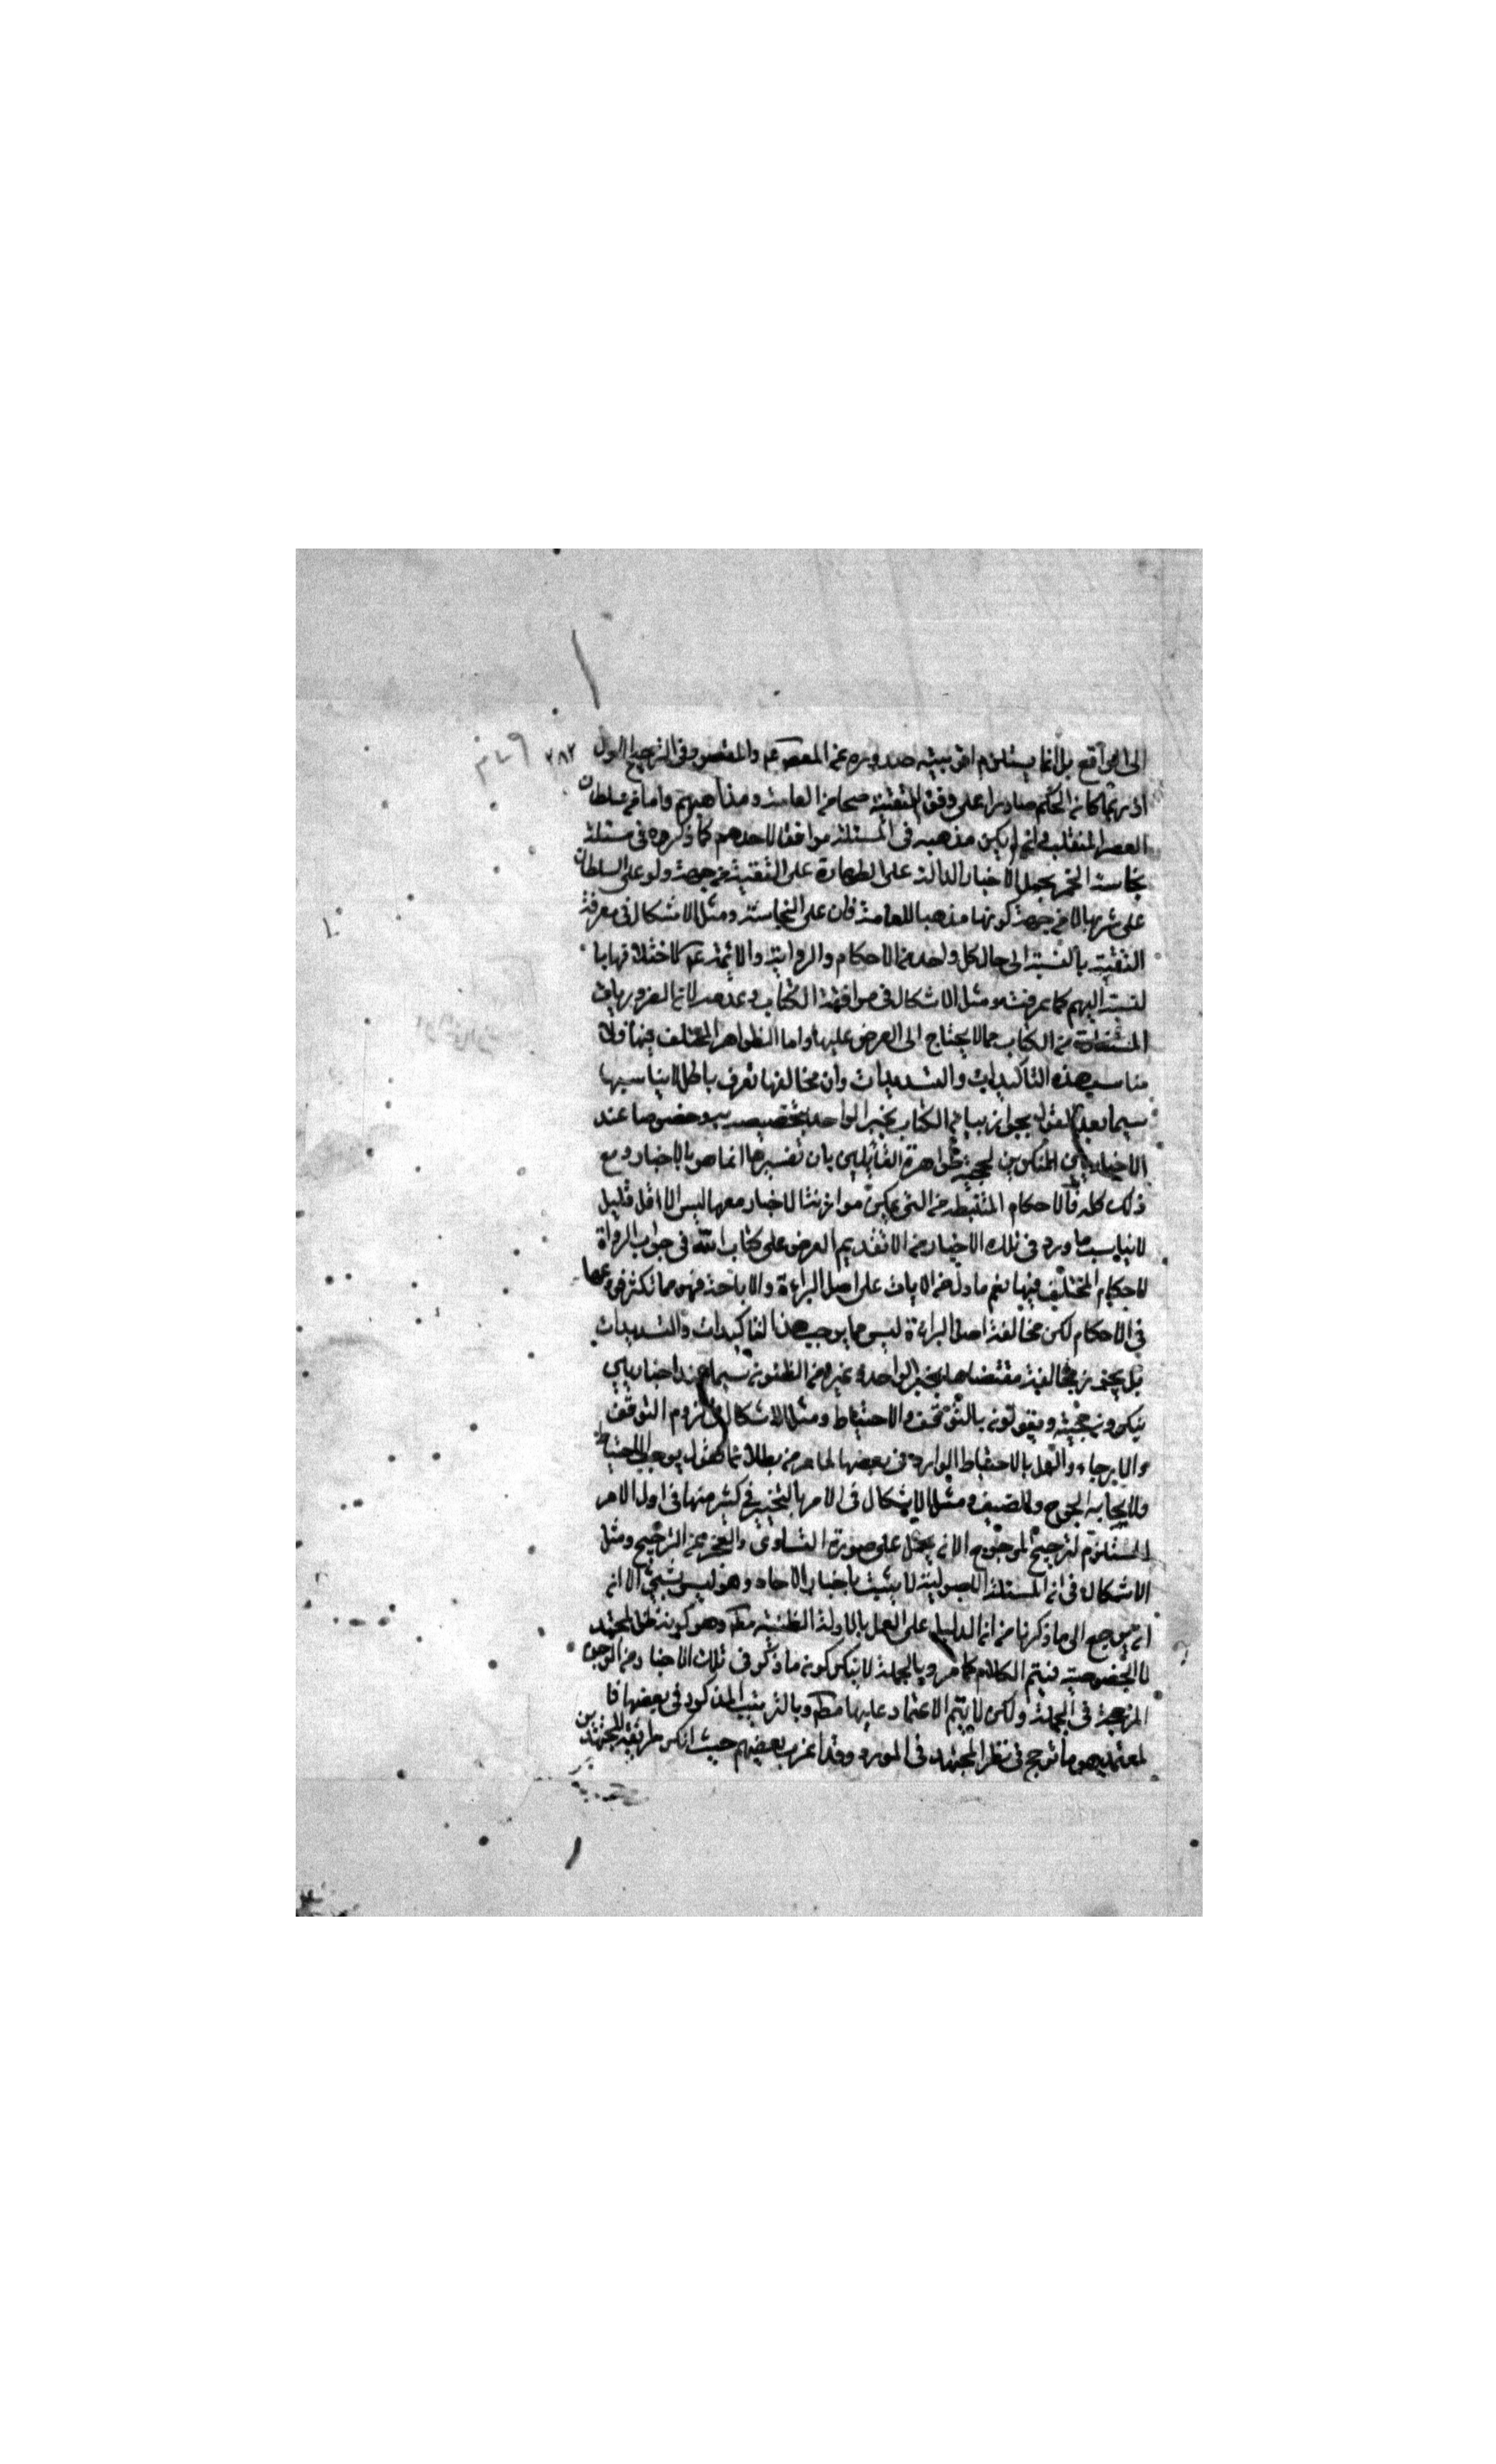 الى الواقع بل انما يستلزم اقربيته صدوره عن المعصوم عم والمقصود فى الترجيح الاول ٢٨٢
اذ ربما كان الحكم صادرا على وفق التقية صحا من العامة ومذاهبهم واما من سلطان
العصر المتقلب وان لم يكن مذهبه فى المسئلة موافقا لاحدهم كما ذكروه فى مسئلة
نجاسة الخمر بحمل الاخبار الدالة على الطهارة على التقية من جهة ولوع السلطان
على شربها لا من جهة كونها مذهبا للعامة فان على النجاسة ومثل الاشكال فى معرفة
التقية بالنسبة الى حال كل واحد من الاحكام والرواية والائمة عم لاختلافها با
لنسبة اليهم كما عرفت ومثل الاشكال فى موافقة الكتاب وعدمه لان الضروريات
المستفادة من الكتاب مما لا يحتاج الى العرض عليها واما الظواهر المختلف فيها فلا
مناسب هذه التاكيدات والتشديدات وان مخالفها زخرف باطل لا يناسبها
سيما بعد القول بجواز بيان الكتاب بخبر الواحد وتخصيصه به وخصوصا عند
الاخباريين المنكرين لحجية ظواهره القائلين بان تفسيرها انما هو بالاخبار ومع
ذلك كله فالاحكام المستنبطة من التى يمكن موازنة الاخبار معها ليس الا اقل قليل
لا يناسب ما ورد فى تلك الاخبار من الا تقديم العرض على كتاب الله فى جواب الرواة
لاحكام المختلف فيها نعم ما دل من الايات على اصل البراءة والاباحة فهو مما تكثر فروعها
فى الاحكام لكن مخالفة اصل البراءة ليس مما يوجب هذا التاكيدات والتشديدات
بل يجوز مخالفة مقتضاها بخبر الواحد وغيره من الظنون سيما عند اخباريين
ينكرون حجيته ويقولون بالتوقف والاحتياط ومثل الاشكال فى لزوم التوقف
والارجاء والعمل بالاحتياط الوارد فى بعضها لما مر من بطلان القول بوجوب الاحتياط
ولايجابه الحرج والضيق ومثل الاشكال فى الامر بالتخيير فى كثير منها فى اول الامر
المستلزم لترجيح المرجوح الا ان يحمل على صورة التساوى والعجز عن الترجيح ومثل
الاشكال فى ان المسئلة الاصولية لا يثبت باخبار الاحاد وهو ليس بشئ الا ان
ان يرجع الى ما ذكرنا من ان الدليل على العمل بالادلة الظنية مط وهو كونه ظن المجتهد
لا الخصوصية فيتم الكلام كما مر وبالجملة لا ينكر كون ما ذكر فى تلك الاخبار من الوجوه
المرجحة فى الجملة ولكن لا يتم الاعتماد عليها مط وبالترتيب المذكور فى بعضها فا
لمعتمد هو ما ترجح فى نظر المجتهد فى المورد وقد اغرب بعضهم حيث انكر طريقة المجتهدين